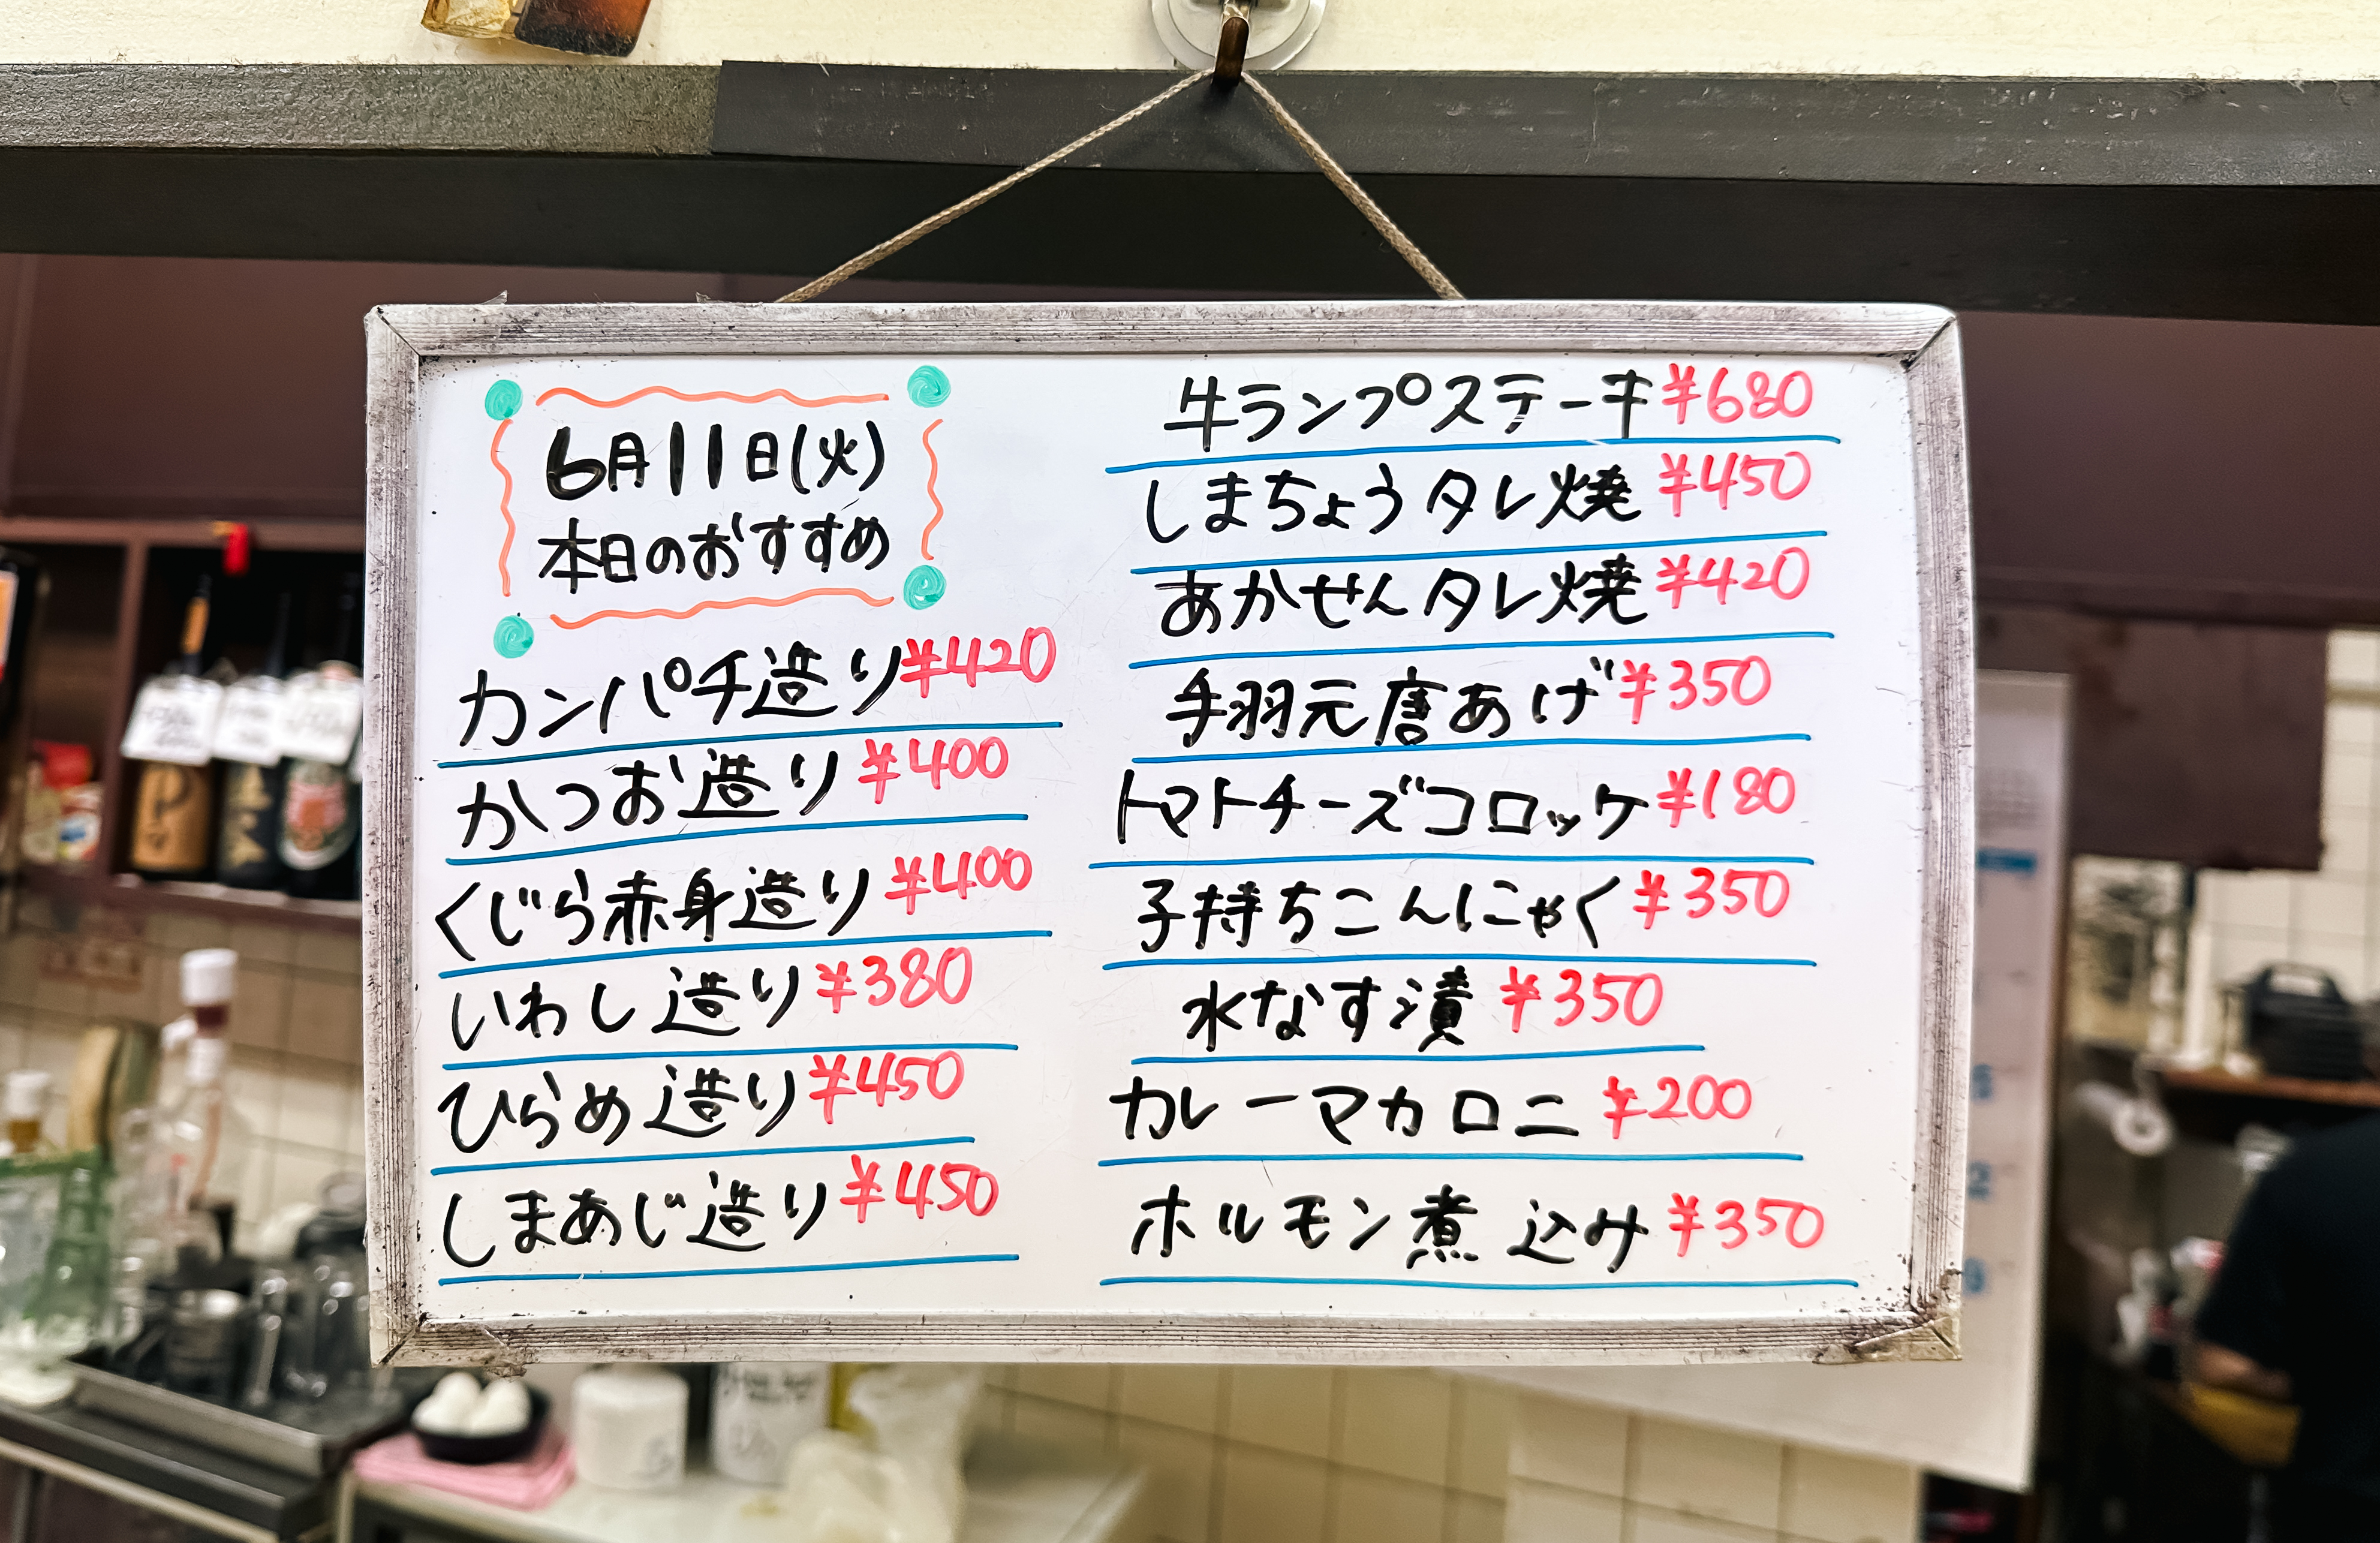 6月11日(火)
本日のおすすめ
カンパチ造り¥420
かつお造り¥400
くじら赤身造り¥400
いわし造り¥380
ひらめ造り¥450
しまあじ造り¥450
牛ランプステーキ¥680
しまちょうタレ焼¥450
あかせんタレ焼¥420
手羽元唐あげ¥350
トマトチーズコロッケ¥180
子持ちこんにゃく¥350
水なす漬¥350
カレーマカロニ¥200
ホルモン煮込み¥350